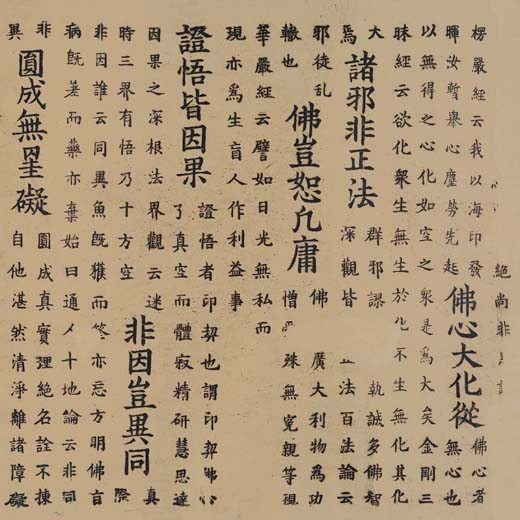 楞嚴經云我以海印發
暉汝暫舉心塵勞先起
佛心大化從
佛心者
無心也
以無得之心化如空之衆是爲大矣金剛三
昧經云欲化衆生無生於化不生無化其化
大
焉
諸邪非正法
群邪謬 執誠多佛智
深觀皆 法百法論云
邪徒乱
轍也
佛豈恕凡庸
佛 廣大利物爲功
憎 殊無寃親等現
華嚴經云譬如日光無私而
現亦爲生盲人作利益事
證悟皆因果
證悟者印契也謂印契佛心
了真空而體寂精研慧思達
因果之深根法界觀云迷
時三界有悟乃十方空
非因豈異同
真
際
非因誰云同異魚旣獲而筌亦忘方明佛旨
病旣差而藥亦棄始曰通人十地論云非同
非
異
圓成無罣礙
圓成真實理絕名詮不揀
自他湛然清淨離諸障礙